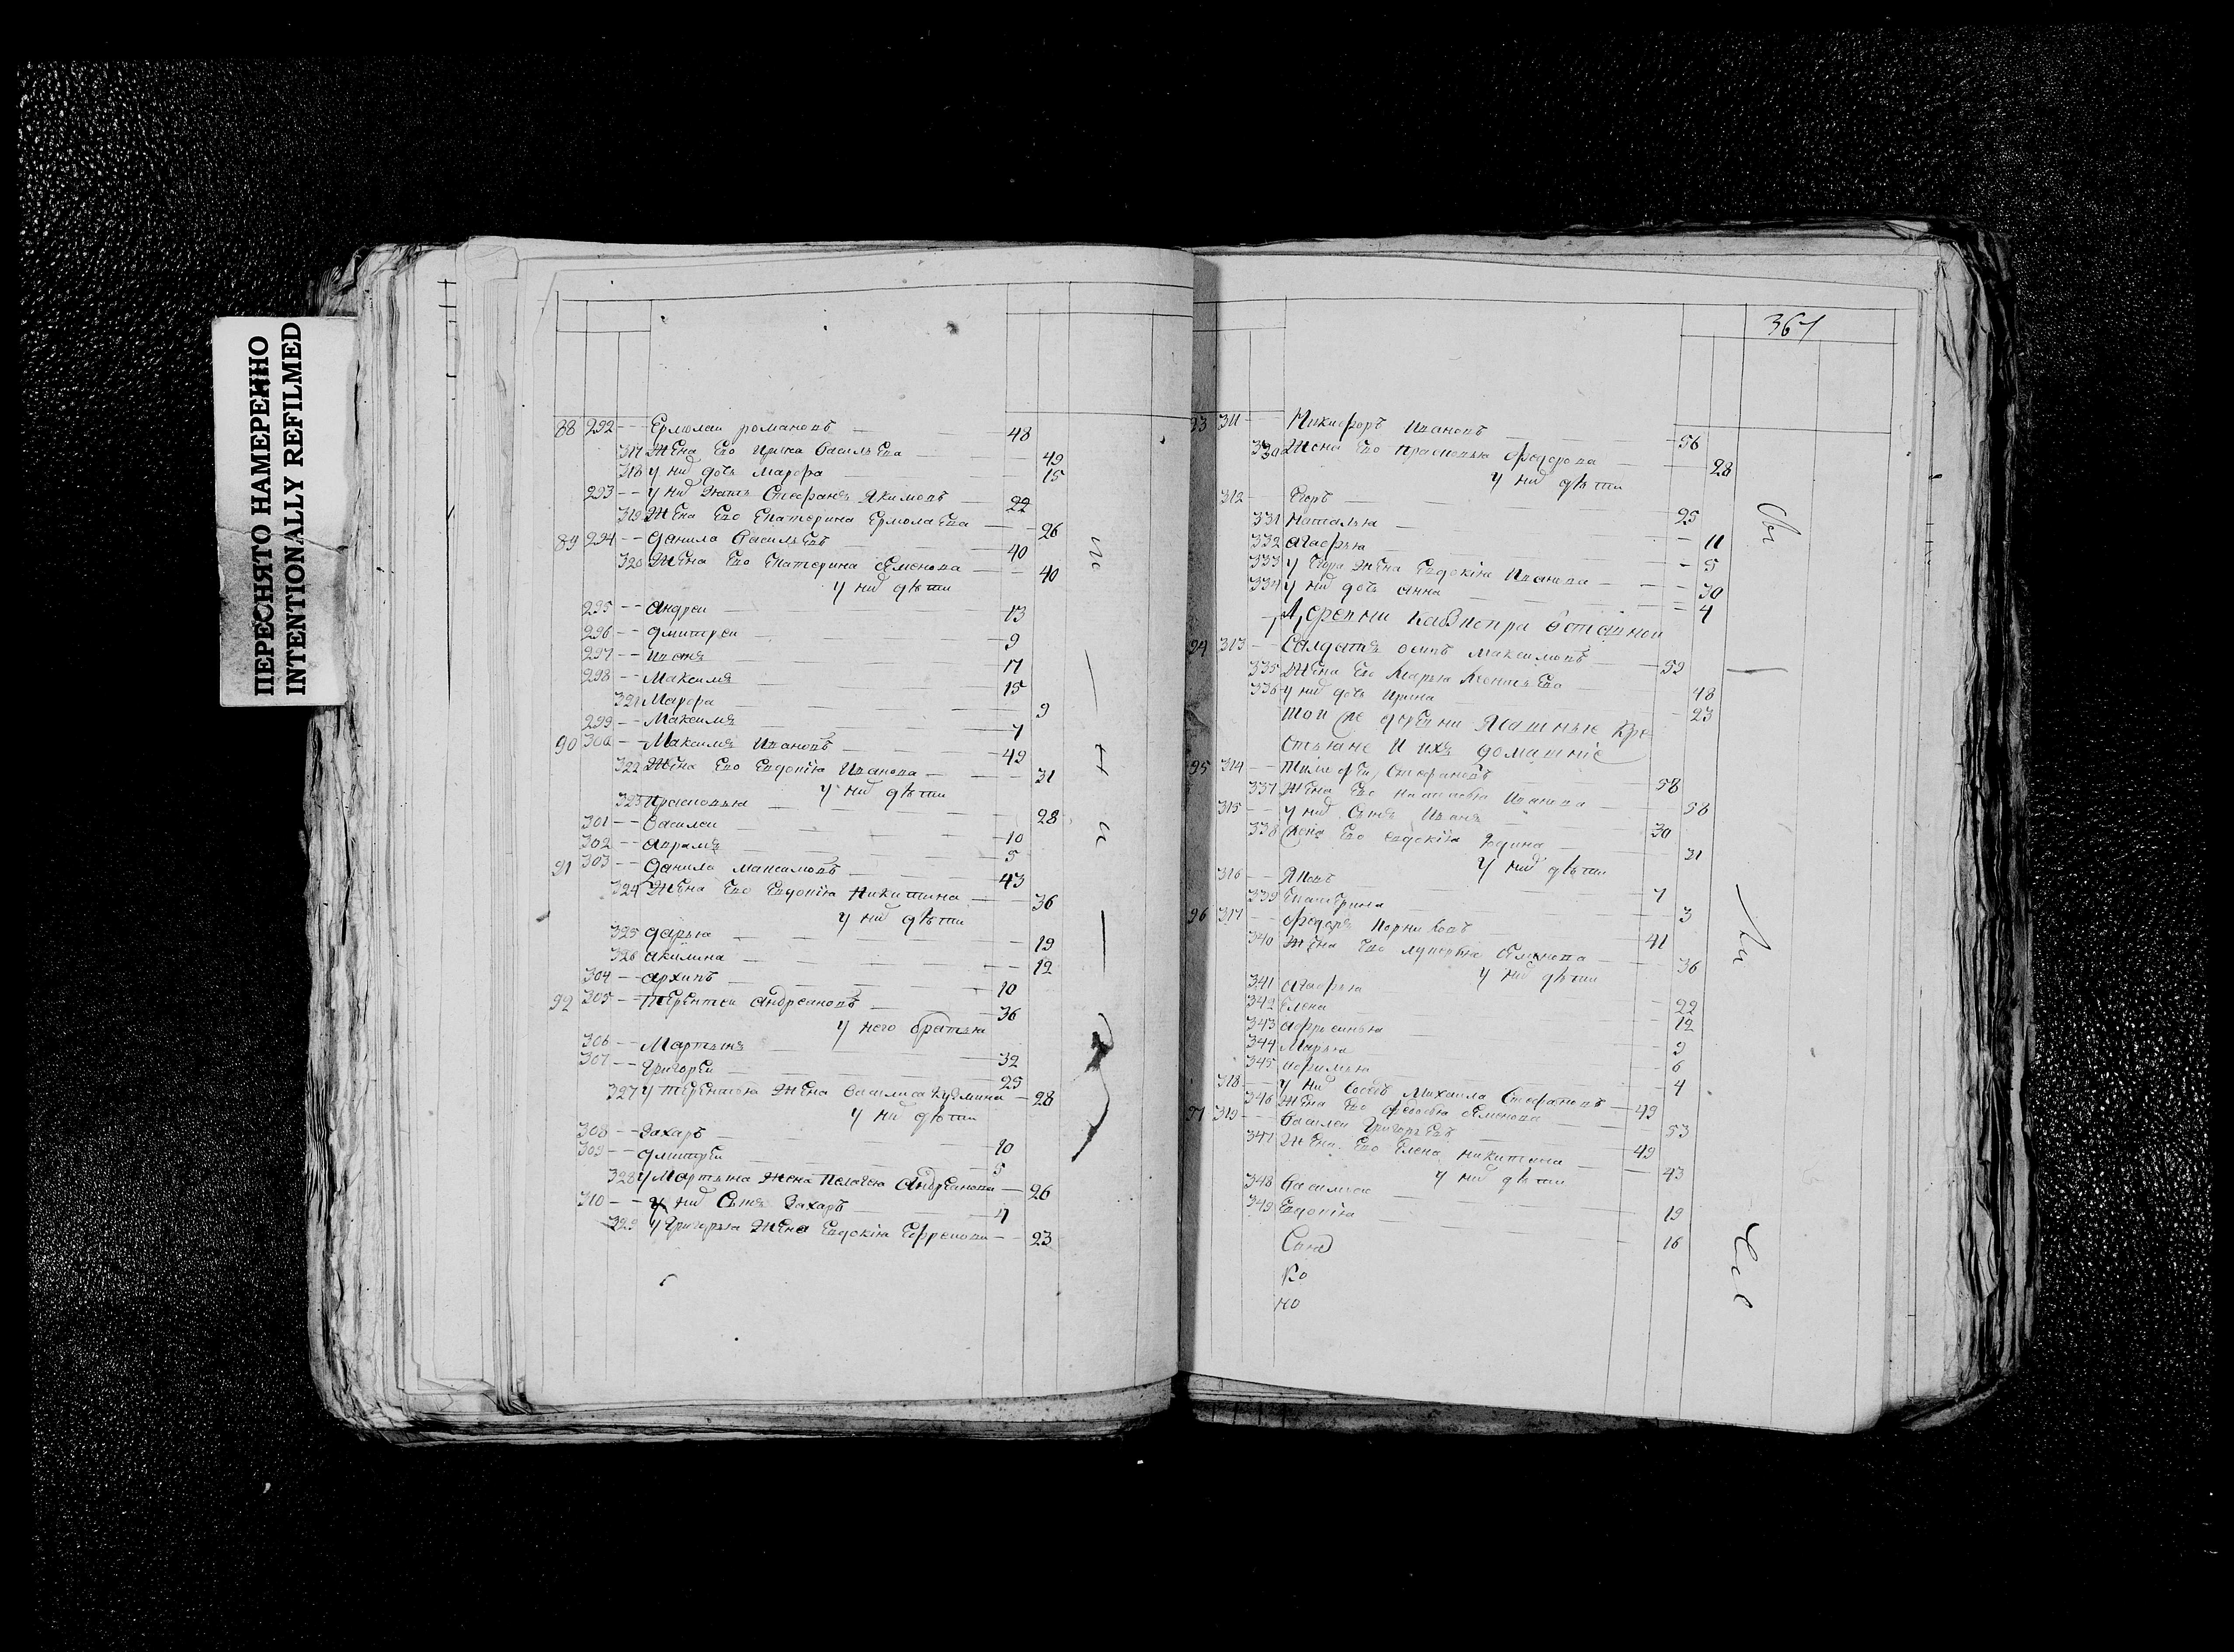 ПЕРЕСНЯТО НАМЕРЕННО
INTENTIONALLY REFILMED
88 292 -- Ермолаи романовъ 48
317 Жена Ево Ирина Василъева 49
318 у них дочь Марфа 15
293 -- у них зять Стефанъ Якимовъ 22
319 Жена Ево Екатерина Ермолаева 26
89 294 -- данила Василъевъ 40
320 Жена Ево Екатерина Семенова 40
у них дѣти
295 -- андреи 13
296 -- дмитреи 9
297 -- иванъ 17
298 -- Максимъ 15
321 Марфа 9
299 -- Максимъ 7
90 300 -- Максимъ Ивановъ 49
322 Жена Ево Евдокія Иванова 31
у них дѣти
323 Прасковья 28
301 -- Василеи 10
302 -- аврамъ 5
91 303 -- данила максимовъ 43
324 Жена Ево Евдокія Никитина 36
у них дѣти
325 дарья 19
326 акилина 12
304 -- архипъ 10
92 305 -- терентеи андреановъ 36
у него братья
306 -- Мартынъ 32
307 -- Григореи 25
327 у терентья Жена Василиса Кузмина 28
у них дѣти
308 -- Захаръ 10
309 -- дмитреи 5
328 у Мартына Жена Пелагея андреанова 26
310 -- у них Сынъ Захаръ 4
329 у Григорья Жена Евдокія Ефремова 23
но
ч
и
367
93 311 Никифоръ Ивановъ 56
330 Жена Ево прасковья федорова 28
у них дѣти
312 Егоръ 25
331 наталья 11
332 агафья 5
333 у Егора Жена Евдокія Иванова 30
334 у них дочь анна 4
94 313 Салдатъ осипъ максимовъ 59
335 Жена Ево Марья 48
336 у них дочь Ирина 23
той же дервни Ямашные Кре
стьяне И ихъ домашніе
95 314 тимофеи Стефановъ 58
337 Жена Ево Иванова 58
315 у них Сынъ Иванъ 30
338 Жена Ево евдокія 31
у них дѣти
316 Яковъ 7
339 Екатерина 3
96 317 федоръ 41
340 Жена Ево лукерья Семенова 36
у них дѣти
341 агафья 22
342 Елена 12
343 9
344 Марья 6
345 4
318 у них Михаила Стефановъ 49
346 Жена Ево федосья Семенова 53
97 319 Василеи Григорьевъ 49
347 Жена Ево Елена никитина 43
у них дѣти
348 Василиса 19
349 Евдокія 16
Ко
но